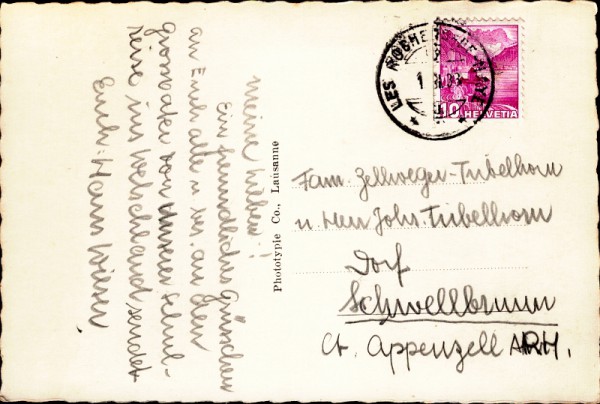 Meine Lieben!
Ein freundliches Grüsschen
an Euch alle u. sp. an den
Grossätti von unserer Schul-
reise ins Welschland sendet
Euch: Hans
Phototypie Co., Lausanne
LES ROCHERS DE NAYE
10 HELVETIA
Fam. Zellweger-Tribelhorn
u. Herr Johs. Tribelhorn
Dorf
Schwellbrunn
Ct. Appenzell ARH.